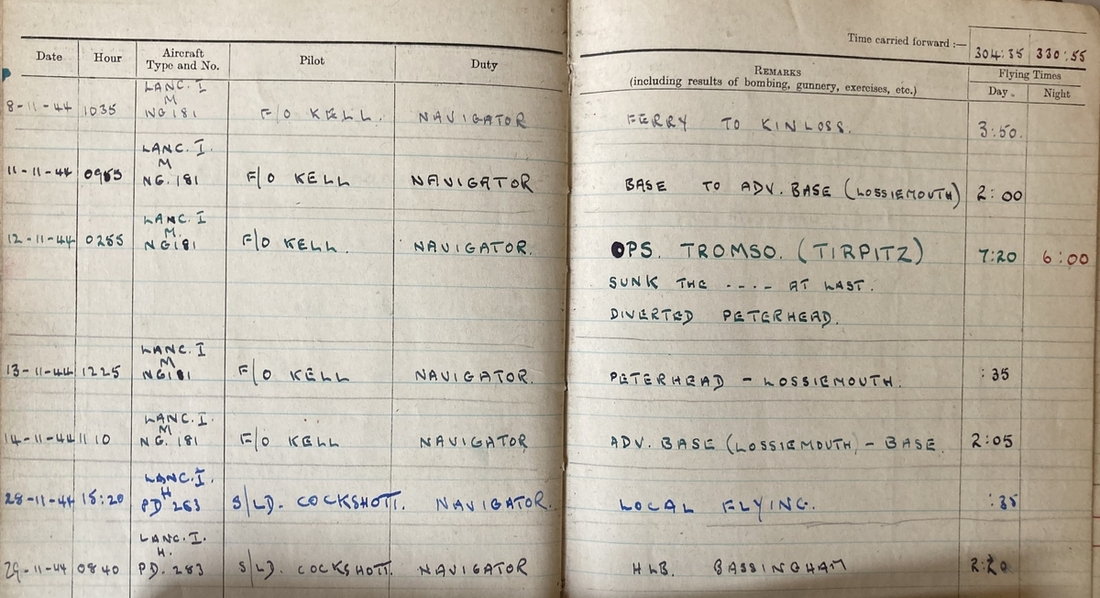 Time carried forward :— 304:35 330:55
Date Hour Aircraft Type and No. Pilot Duty REMARKS (including results of bombing, gunnery, exercises, etc.) Flying Times
Day. Night
LANC. I
M
8-11-44 1035 NG181 F/O KELL. NAVIGATOR FERRY TO KINLOSS. 3:50.
LANC. I.
M
11-11-44 NG. 181 F/O KELL NAVIGATOR BASE TO ADV. BASE (LOSSIEMOUTH) 2:00
LANC. I
M.
12-11-44 0255 NG181 F/O KELL. NAVIGATOR. OPS. TROMSO. (TIRPITZ) 7:20 6:00
SUNK THE ---- AT LAST.
DIVERTED PETERHEAD.
LANC. I
M
13-11-44 1225 NG181 F/O KELL NAVIGATOR. PETERHEAD - LOSSIEMOUTH. :35
LANC. I.
M
14-11-44 1110 NG. 181 F/O KELL NAVIGATOR ADV. BASE (LOSSIEMOUTH) - BASE. 2:05
LANC. I.
H
28-11-44 15:20 PD S/LD. COCKSHOTT. NAVIGATOR. LOCAL FLYING. :35
LANC. I.
H.
29-11-44 0840 PD. 283 S/LD. COCKSHOTT. NAVIGATOR HLB. BASSINGHAM 2:20